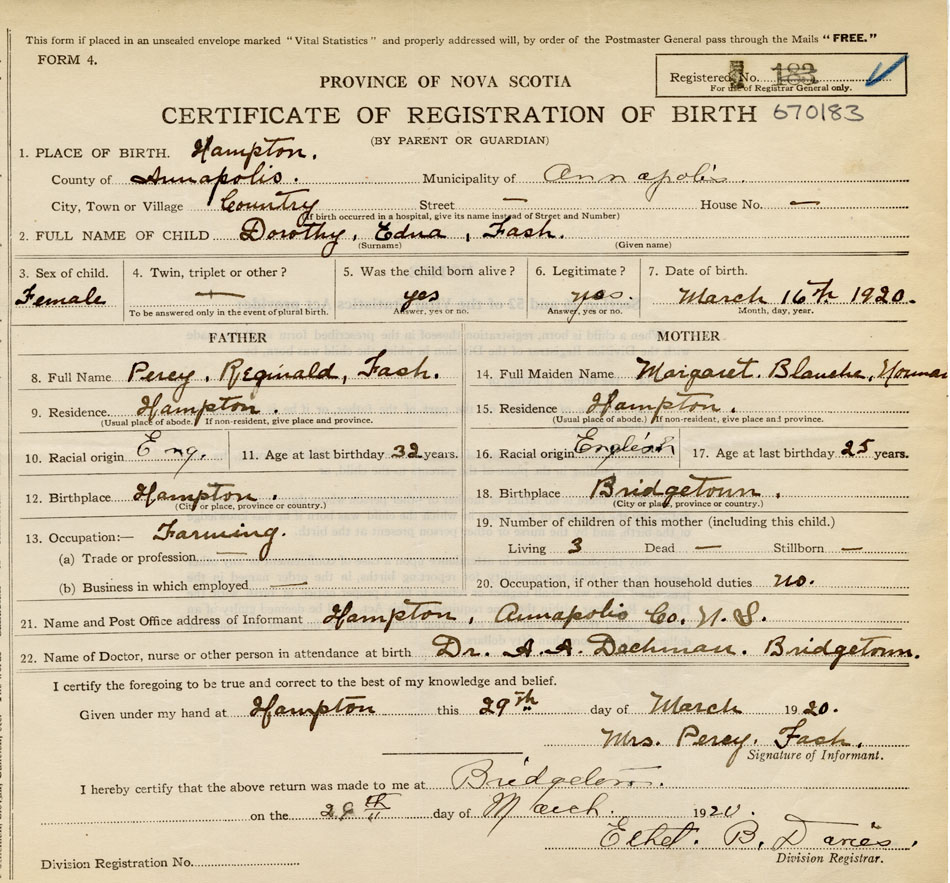 This form if placed in an unsealed envelope marked "Vital Statistics" and properly addressed will, by order of the Postmaster General pass through the Mails "FREE."
FORM 4.
Registered No. 183
For use of Registrar General only.
PROVINCE OF NOVA SCOTIA
CERTIFICATE OF REGISTRATION OF BIRTH 670183
(BY PARENT OR GUARDIAN)
1. PLACE OF BIRTH. Hampton.
County of Annapolis. Municipality of Annapolis.
City, Town or Village Country Street — House No. —
(If birth occurred in a hospital, give its name instead of Street and Number)
2. FULL NAME OF CHILD Dorothy, Edna, Fash.
(Surname) (Given name)
3. Sex of child. 4. Twin, triplet or other? 5. Was the child born alive? 6. Legitimate? 7. Date of birth.
Female — yes yes. March 16th 1920.
To be answered only in the event of plural birth. Answer, yes or no. Answer, yes or no. Month, day, year.
FATHER MOTHER
8. Full Name Percy, Reginald, Fash. 14. Full Maiden Name Margaret. Blanche,
9. Residence. Hampton. 15. Residence Hampton.
(Usual place of abode.) If non-resident, give place and province. (Usual place of abode.) If non-resident, give place and province.
10. Racial origin Eng. 11. Age at last birthday 32 years. 16. Racial origin English 17. Age at last birthday 25 years.
12. Birthplace Hampton. 18. Birthplace Bridgetown.
(City or place, province or country.) (City or place, province or country.)
13. Occupation:— Farming. 19. Number of children of this mother (including this child.)
(a) Trade or profession — Living 3 Dead — Stillborn —
(b) Business in which employed — 20. Occupation, if other than household duties no.
21. Name and Post Office address of Informant Hampton, Annapolis Co. N.S.
22. Name of Doctor, nurse or other person in attendance at birth Dr. A. A. Dechman. Bridgetown.
I certify the foregoing to be true and correct to the best of my knowledge and belief.
Given under my hand at Hampton this 29th day of March 1920.
Mrs. Percy. Fash.
Signature of Informant.
I hereby certify that the above return was made to me at Bridgetown.
on the day of March 1920.
Ethel. B. Davies.
Division Registrar.
Division Registration No.